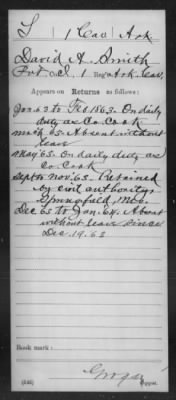 S | 1 | Cav | Ark
David A. Smith
Pvt. Cl, 1 Reg't Ark. Cav.
Appears on Returns as follows:
Jan. 63 to Feb 1863. On daily
duty as Co. Cook
Mch 63. Absent without
leave
May 63. On daily duty as
Co. Cook
Sept to Nov. 63. Retained
by civil authority,
Springfield, Mo.
Dec 63 to Jan. 64. Absent
without leave since
Dec. 19. 63
Book mark:
(546)
Copyist.